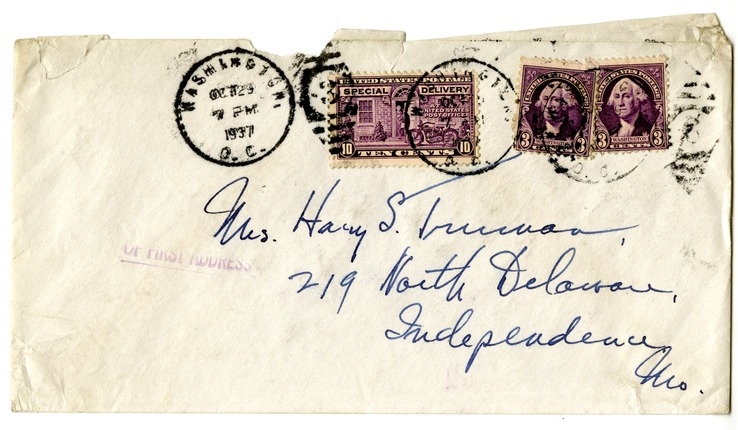 WASHINGTON,
OCT 29
7 PM
1937
D. C.
UNITED STATES POSTAGE
SPECIAL DELIVERY
UNITED STATES
POST OFFICE
10 TEN CENTS 10
3 WASHINGTON 3
UNITED STATES POSTAGE
3 WASHINGTON 3
CENTS
Mrs. Harry S. Truman,
OF FIRST ADDRESS
219 North Delaware,
Independence
Mo.